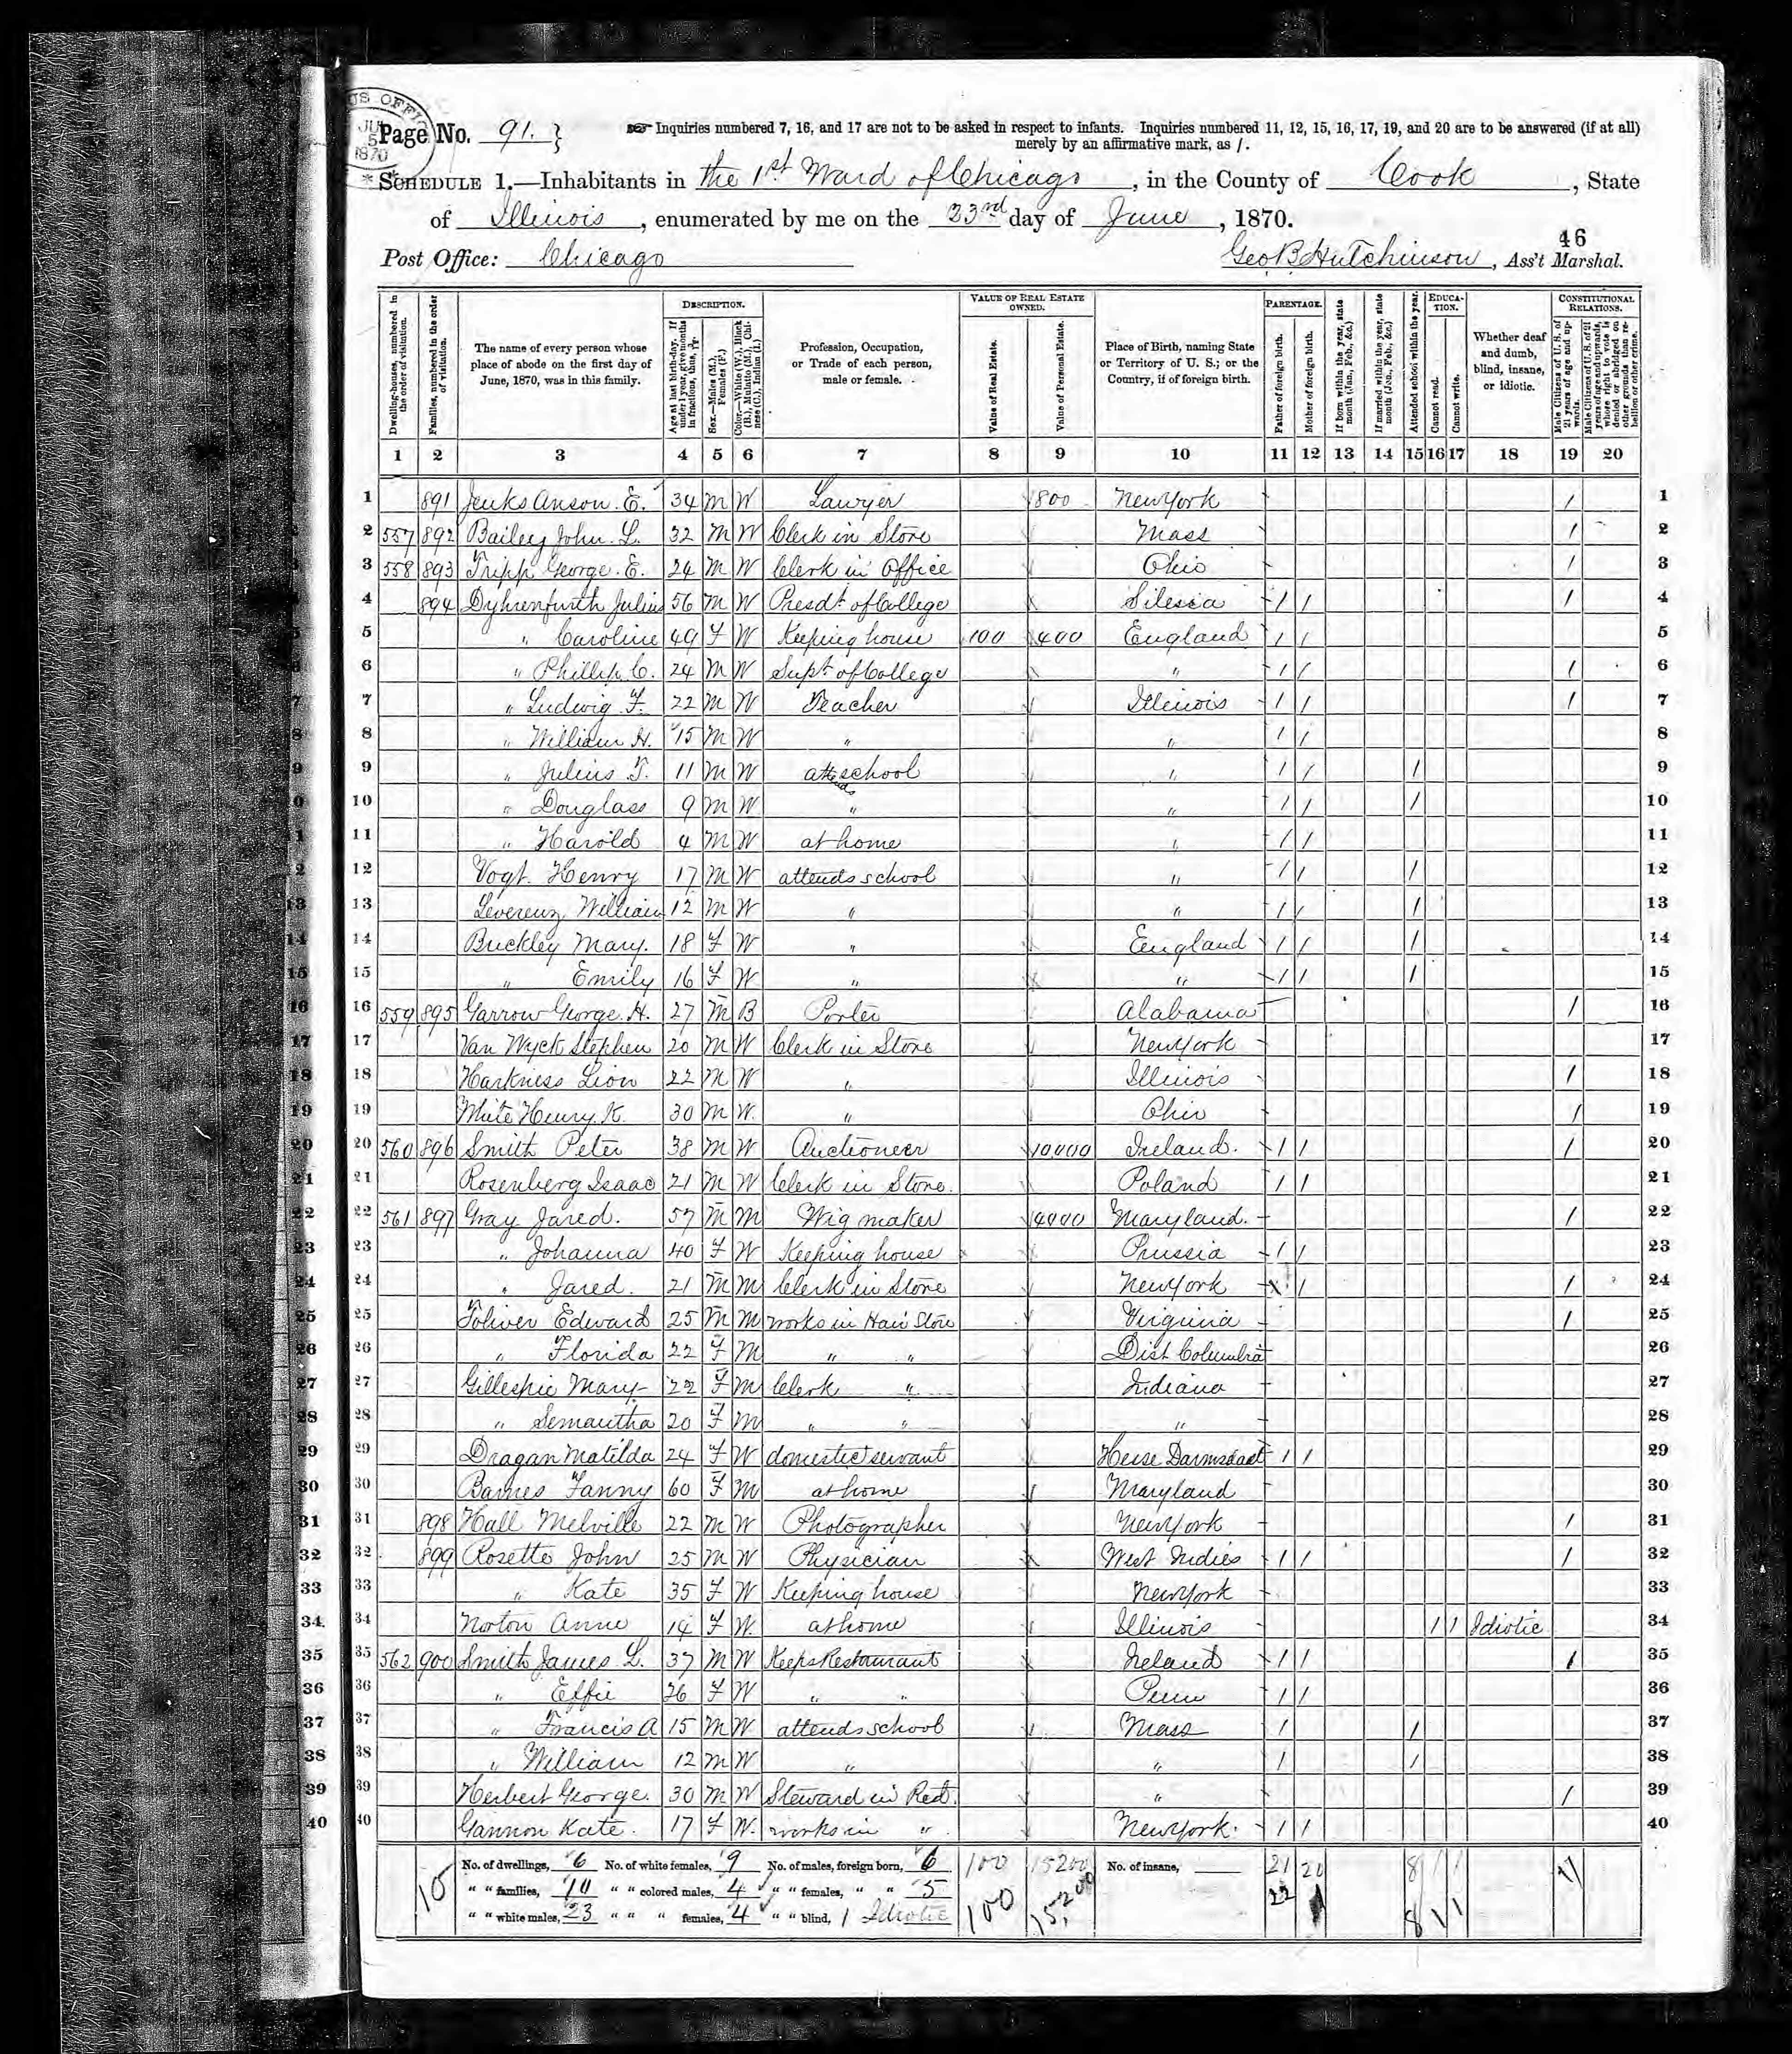 US OFFIC
JU
5
1870
Page No. 91. }
Inquiries numbered 7, 16, and 17 are not to be asked in respect to infants. Inquiries numbered 11, 12, 15, 16, 17, 19, and 20 are to be answered (if at all)
merely by an affirmative mark, as /.
SCHEDULE 1.—Inhabitants in the 1st Ward of Chicago, in the County of Cook, State
of Illinois, enumerated by me on the 23rd day of June, 1870.
46
Post Office: Chicago Geo B Hutchinson, Ass't Marshal.
Dwelling-houses, numbered in the order of visitation.
Families, numbered in the order of visitation.
The name of every person whose place of abode on the first day of June, 1870, was in this family.
DESCRIPTION.
Age at last birth-day. If under 1 year, give months in fractions, thus,
Sex.—Males (M.), Females (F.)
Color.—White (W.), Black (B.), Mulatto (M.), Chinese (C.), Indian (I.)
Profession, Occupation, or Trade of each person, male or female.
VALUE OF REAL ESTATE OWNED.
Value of Real Estate.
Value of Personal Estate.
Place of Birth, naming State or Territory of U. S.; or the Country, if of foreign birth.
PARENTAGE.
Father of foreign birth.
Mother of foreign birth.
If born within the year, state month (Jan., Feb., &c.)
If married within the year, state month (Jan., Feb., &c.)
Attended school within the year.
EDUCATION.
Cannot read.
Cannot write.
Whether deaf and dumb, blind, insane, or idiotic.
CONSTITUTIONAL RELATIONS.
Male Citizens of U. S. of 21 years of age and upwards.
Male Citizens of U. S. of 21 years of age and upwards, whose right to vote is denied or abridged on other grounds than rebellion or other crime.
1 2 3 4 5 6 7 8 9 10 11 12 13 14 15 16 17 18 19 20
1 891 Jenks Anson. E. 34 M W Lawyer 800 New York / 1
2 557 892 Bailey John. L. 32 M W Clerk in Store Mass / 2
3 558 893 Tripp George. E. 24 M W Clerk in Office Ohio / 3
4 894 Dyhrenfurth Julius 56 M W Presdt of College Silesia / / / 4
5 " Caroline 49 F W Keeping house 100 400 England / / 5
6 " Phillip C. 24 M W Supt of College " / / / 6
7 " Ludwig F. 22 M W Teacher Illinois / / / 7
8 " William H. 15 M W " " / / 8
9 " Julius T. 11 M W attends school " / / / 9
10 " Douglass 9 M W " " / / / 10
11 " Harold 4 M W at home " / / 11
12 Vogt. Henry 17 M W attends school " / / / 12
13 Leverenz William 12 M W " " / / / 13
14 Buckley Mary. 18 F W " England / / / 14
15 " Emily 16 F W " " / / / 15
16 559 895 Garrow George. H. 27 M B Porter Alabama / 16
17 Van Wyck Stephen 20 M W Clerk in Store New York 17
18 Harkness Lion 22 M W " Illinois / 18
19 White Henry. K. 30 M W " Ohio / 19
20 560 896 Smith Peter 38 M W Auctioneer 10,000 Ireland. / / / 20
21 Rosenberg Isaac 21 M W Clerk in Store. Poland / / 21
22 561 897 Gray Jared. 57 M M Wig maker 4000 Maryland. / 22
23 " Johanna 40 F W Keeping house Prussia / / 23
24 " Jared. 21 M M Clerk in Store New York x / / 24
25 Toliver Edward 25 M M works in Hair Store Virginia / 25
26 " Florida 22 F M " " Dist Columbia 26
27 Gillespie Mary 22 F M Clerk " Indiana 27
28 " Semantha 20 F M " " " 28
29 Dragan Matilda 24 F W domestic servant Hesse Darmstadt / / 29
30 Barnes Fanny 60 F M at home Maryland 30
31 898 Hall Melville 22 M W Photographer New York / 31
32 899 Rosette John 25 M W Physician West Indies / / / 32
33 " Kate 35 F W Keeping house New York 33
34 Norton Anne 14 F W at home Illinois / / Idiotic 34
35 562 900 Smith James L. 37 M W Keeps Restaurant Ireland / / / 35
36 " Effie 26 F W " " Penn / / 36
37 " Francis A 15 M W attends school Mass / / 37
38 " William 12 M W " " / / 38
39 Herbert George. 30 M W Steward in Rest. " / 39
40 Gannon Kate. 17 F W works in " New York. / / 40
No. of dwellings, 6 No. of white females, 9 No. of males, foreign born, 6 100 15200 No. of insane, 21 20 8 1 1 17
10 " " families, 10 " " colored males, 4 " " females, " " 5 100 15,200 22 8 1 1
" " white males, 23 " " " females, 4 " " blind, 1 Idiotic